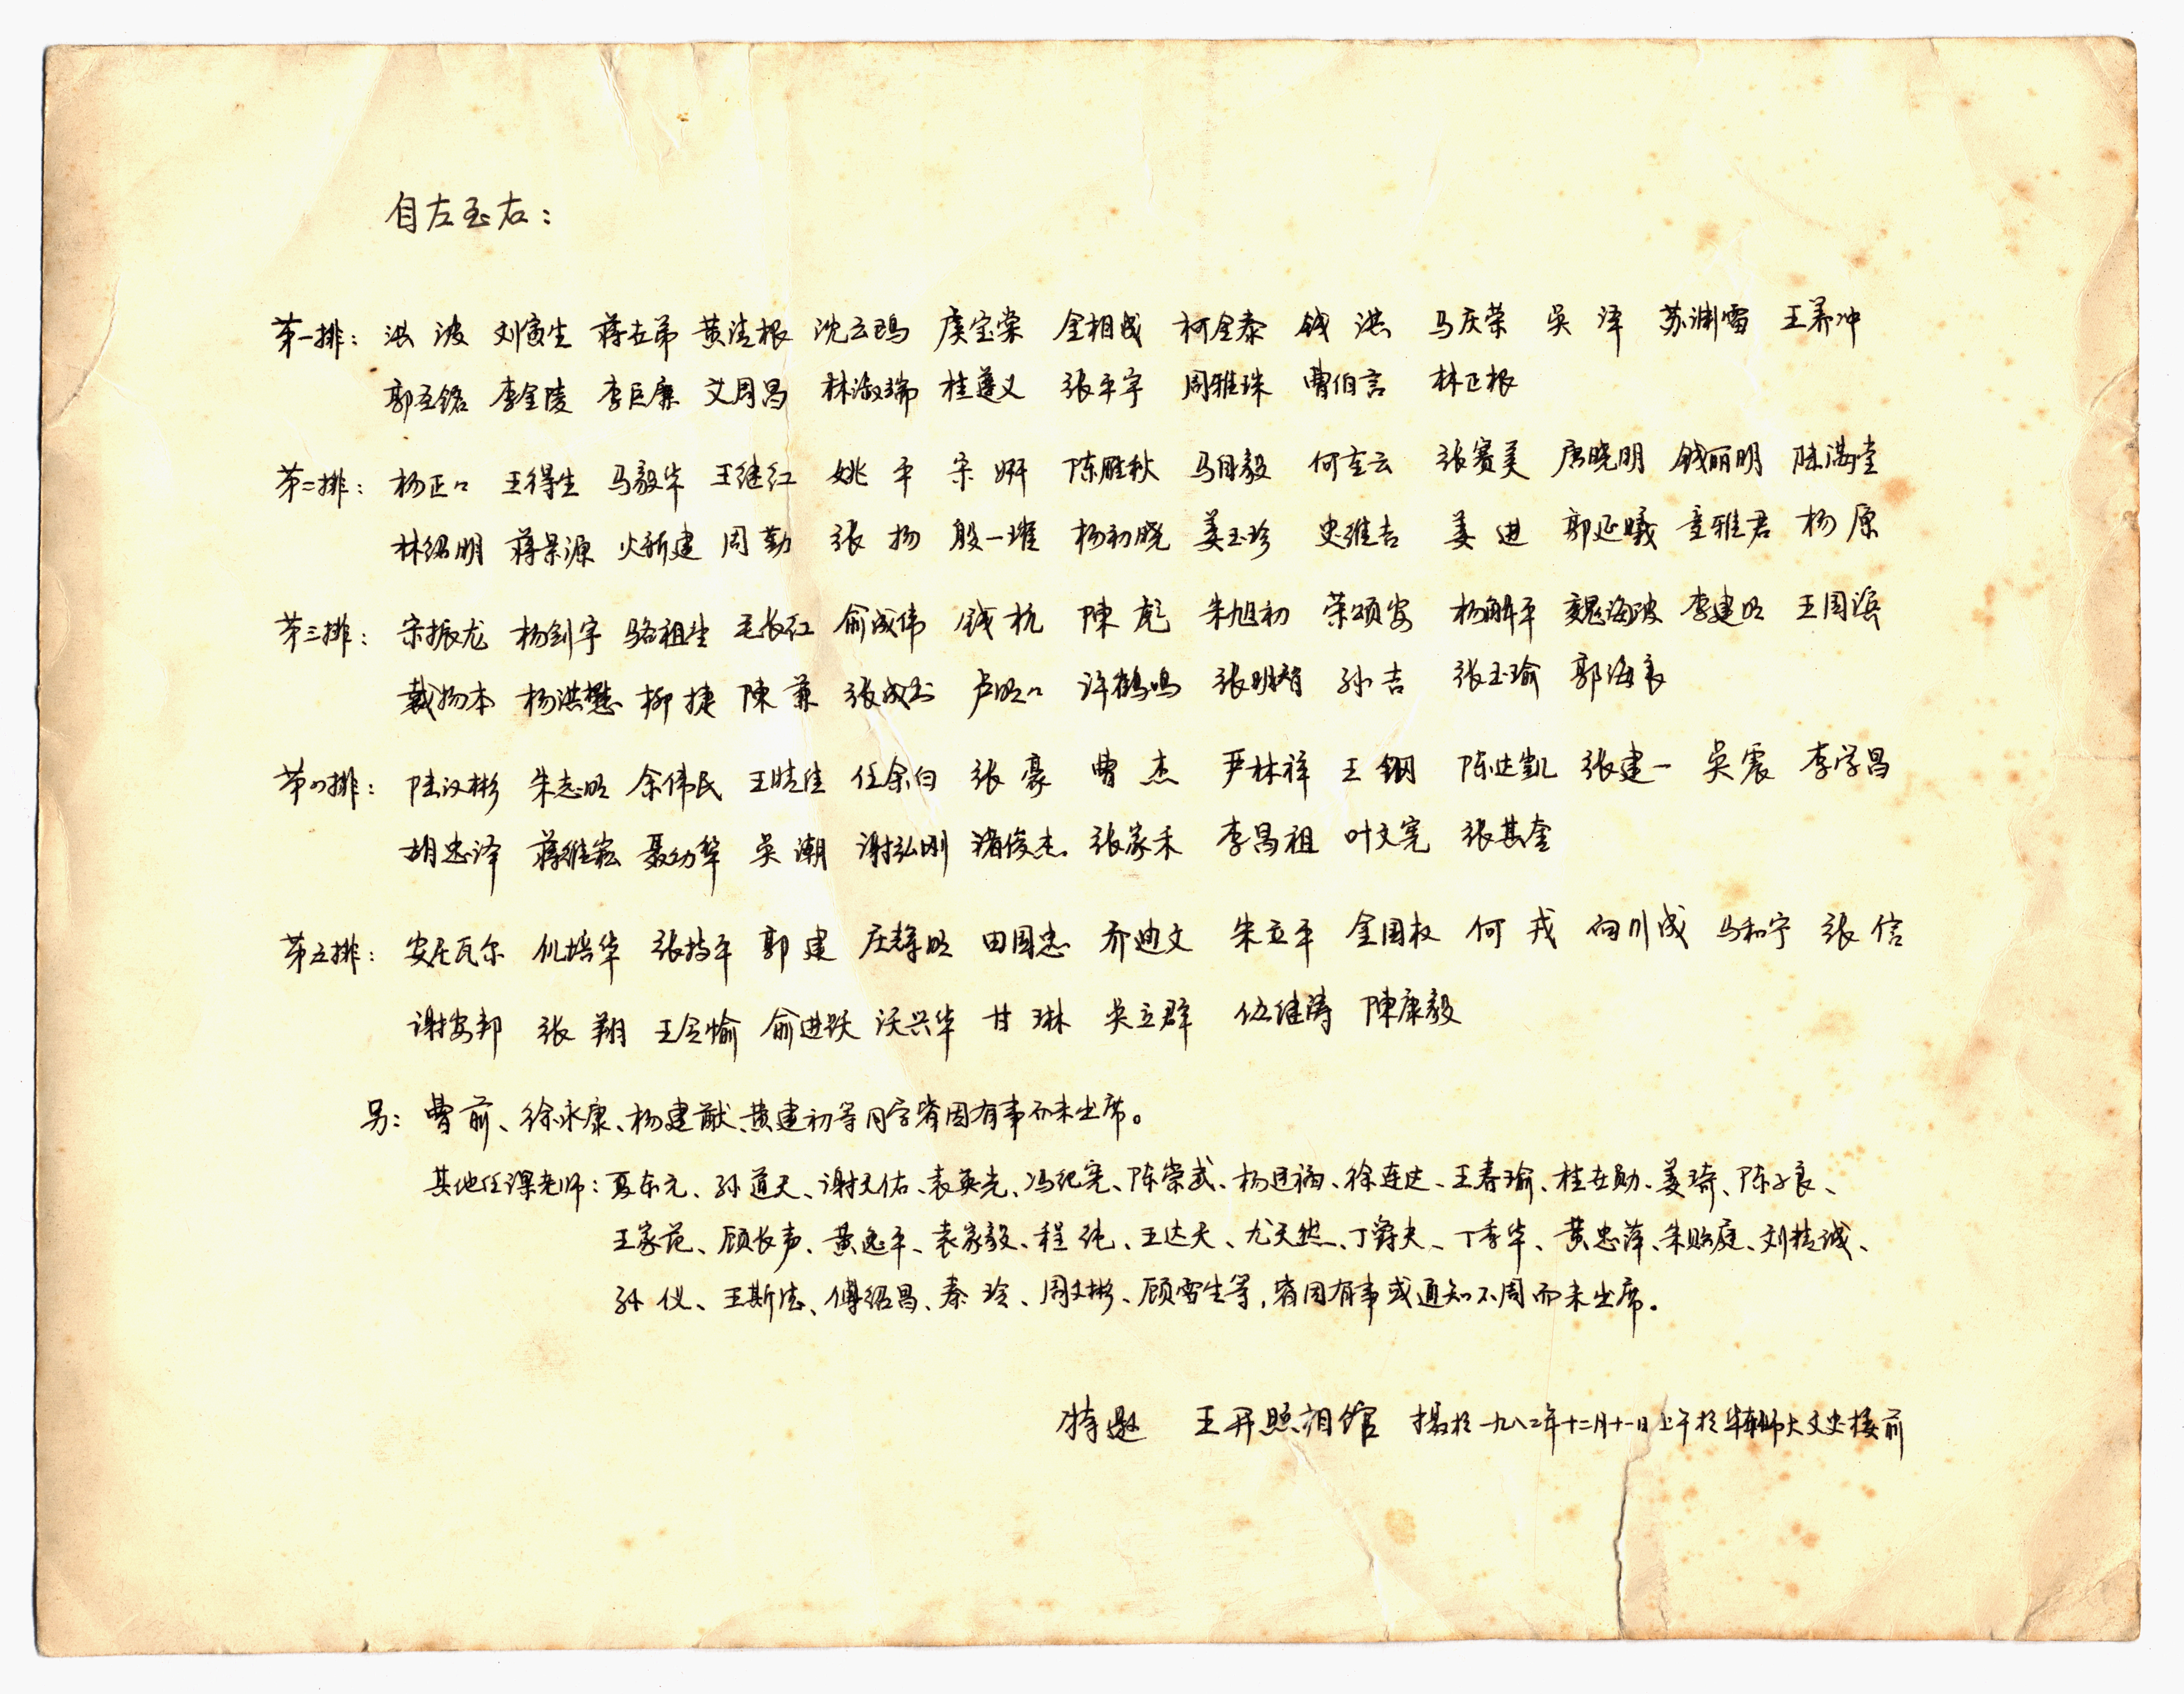 自左至右：
第一排： 洪 波 刘寅生 蒋在弟 黄洪根 沈云瑪 虞宝棠 金相成 柯金泰 钱 洪 马庆荣 吴 泽 苏渊雷 王养冲
郭圣铭 李金陵 李巨廉 艾周昌 林淑瑞 桂遵义 张平宇 周雅珠 曹伯言 林正根
第二排： 杨正口 王得生 马毅华 王继红 姚 平 宋 妍 陈胜秋 马自毅 何左云 张赛美 唐晓明 钱丽明 陆满堂
林绍明 蒋景源 火新建 周 勤 张 扬 殷一璀 杨初晓 姜玉珍 史维吉 姜 进 郭延曦 童雅君 杨 原
第三排： 宋振龙 杨剑宇 骆祖生 毛长江 俞成伟 钱 杭 陳 彪 朱旭初 荣颂安 杨解平 魏海波 李建明 王国滨
戴扬本 杨洪懋 柳 捷 陳 兼 张成玉 卢明口 许鹤鸣 张明智 孙 吉 张玉瑜 郭海良
第四排： 陆汉彬 朱志明 余伟民 王晴佳 任余白 张 豪 曹 杰 严林祥 王 钢 陈达凯 张建一 吴 震 李学昌
胡忠泽 蒋维崧 聂幼犂 吴 潮 谢弘刚 褚俊杰 张家禾 李昌祖 叶文宪 张其奎
第五排： 安尼瓦尔 仇培华 张持平 郭 建 庄辉明 田国忠 乔迪文 朱立平 金国权 何 戎 向川成 马和宁 张 信
谢安邦 张 翔 王令愉 俞进跃 沃兴华 甘 琳 吴立群 伍继涛 陳康毅
另： 曹 前、徐永康、杨建猷、黄建初等同学皆因有事而未出席。
其他任课老师：夏东元、孙道天、谢天佑、袁英光、冯纪宪、陈崇武、杨廷福、徐连达、王春瑜、桂世勋、姜琦、陈子良、
王家范、顾长声、黄逸平、袁家毅、程 纯、王达天、尤天然、丁爵夫、丁季华、黄忠萍、朱贻庭、刘桂诚、
孙 仪、王斯德、傅绍昌、秦 玲、周文彬、顾雪生等，皆因有事或通知不周而未出席。
特邀 王开照相馆 摄於一九八二年十二月十一日上午於华东师大文史楼前